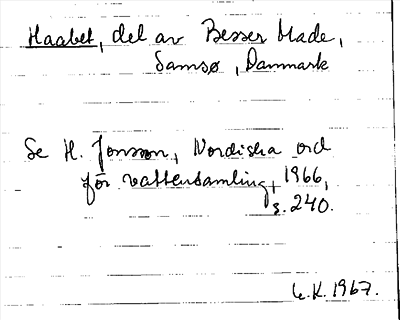 Haabet, del av Besser Made,
Samsø, Danmark
Se H. Jonsson, Nordiska ord
för vattensamling, 1966,
s. 240.
L.K. 1967.